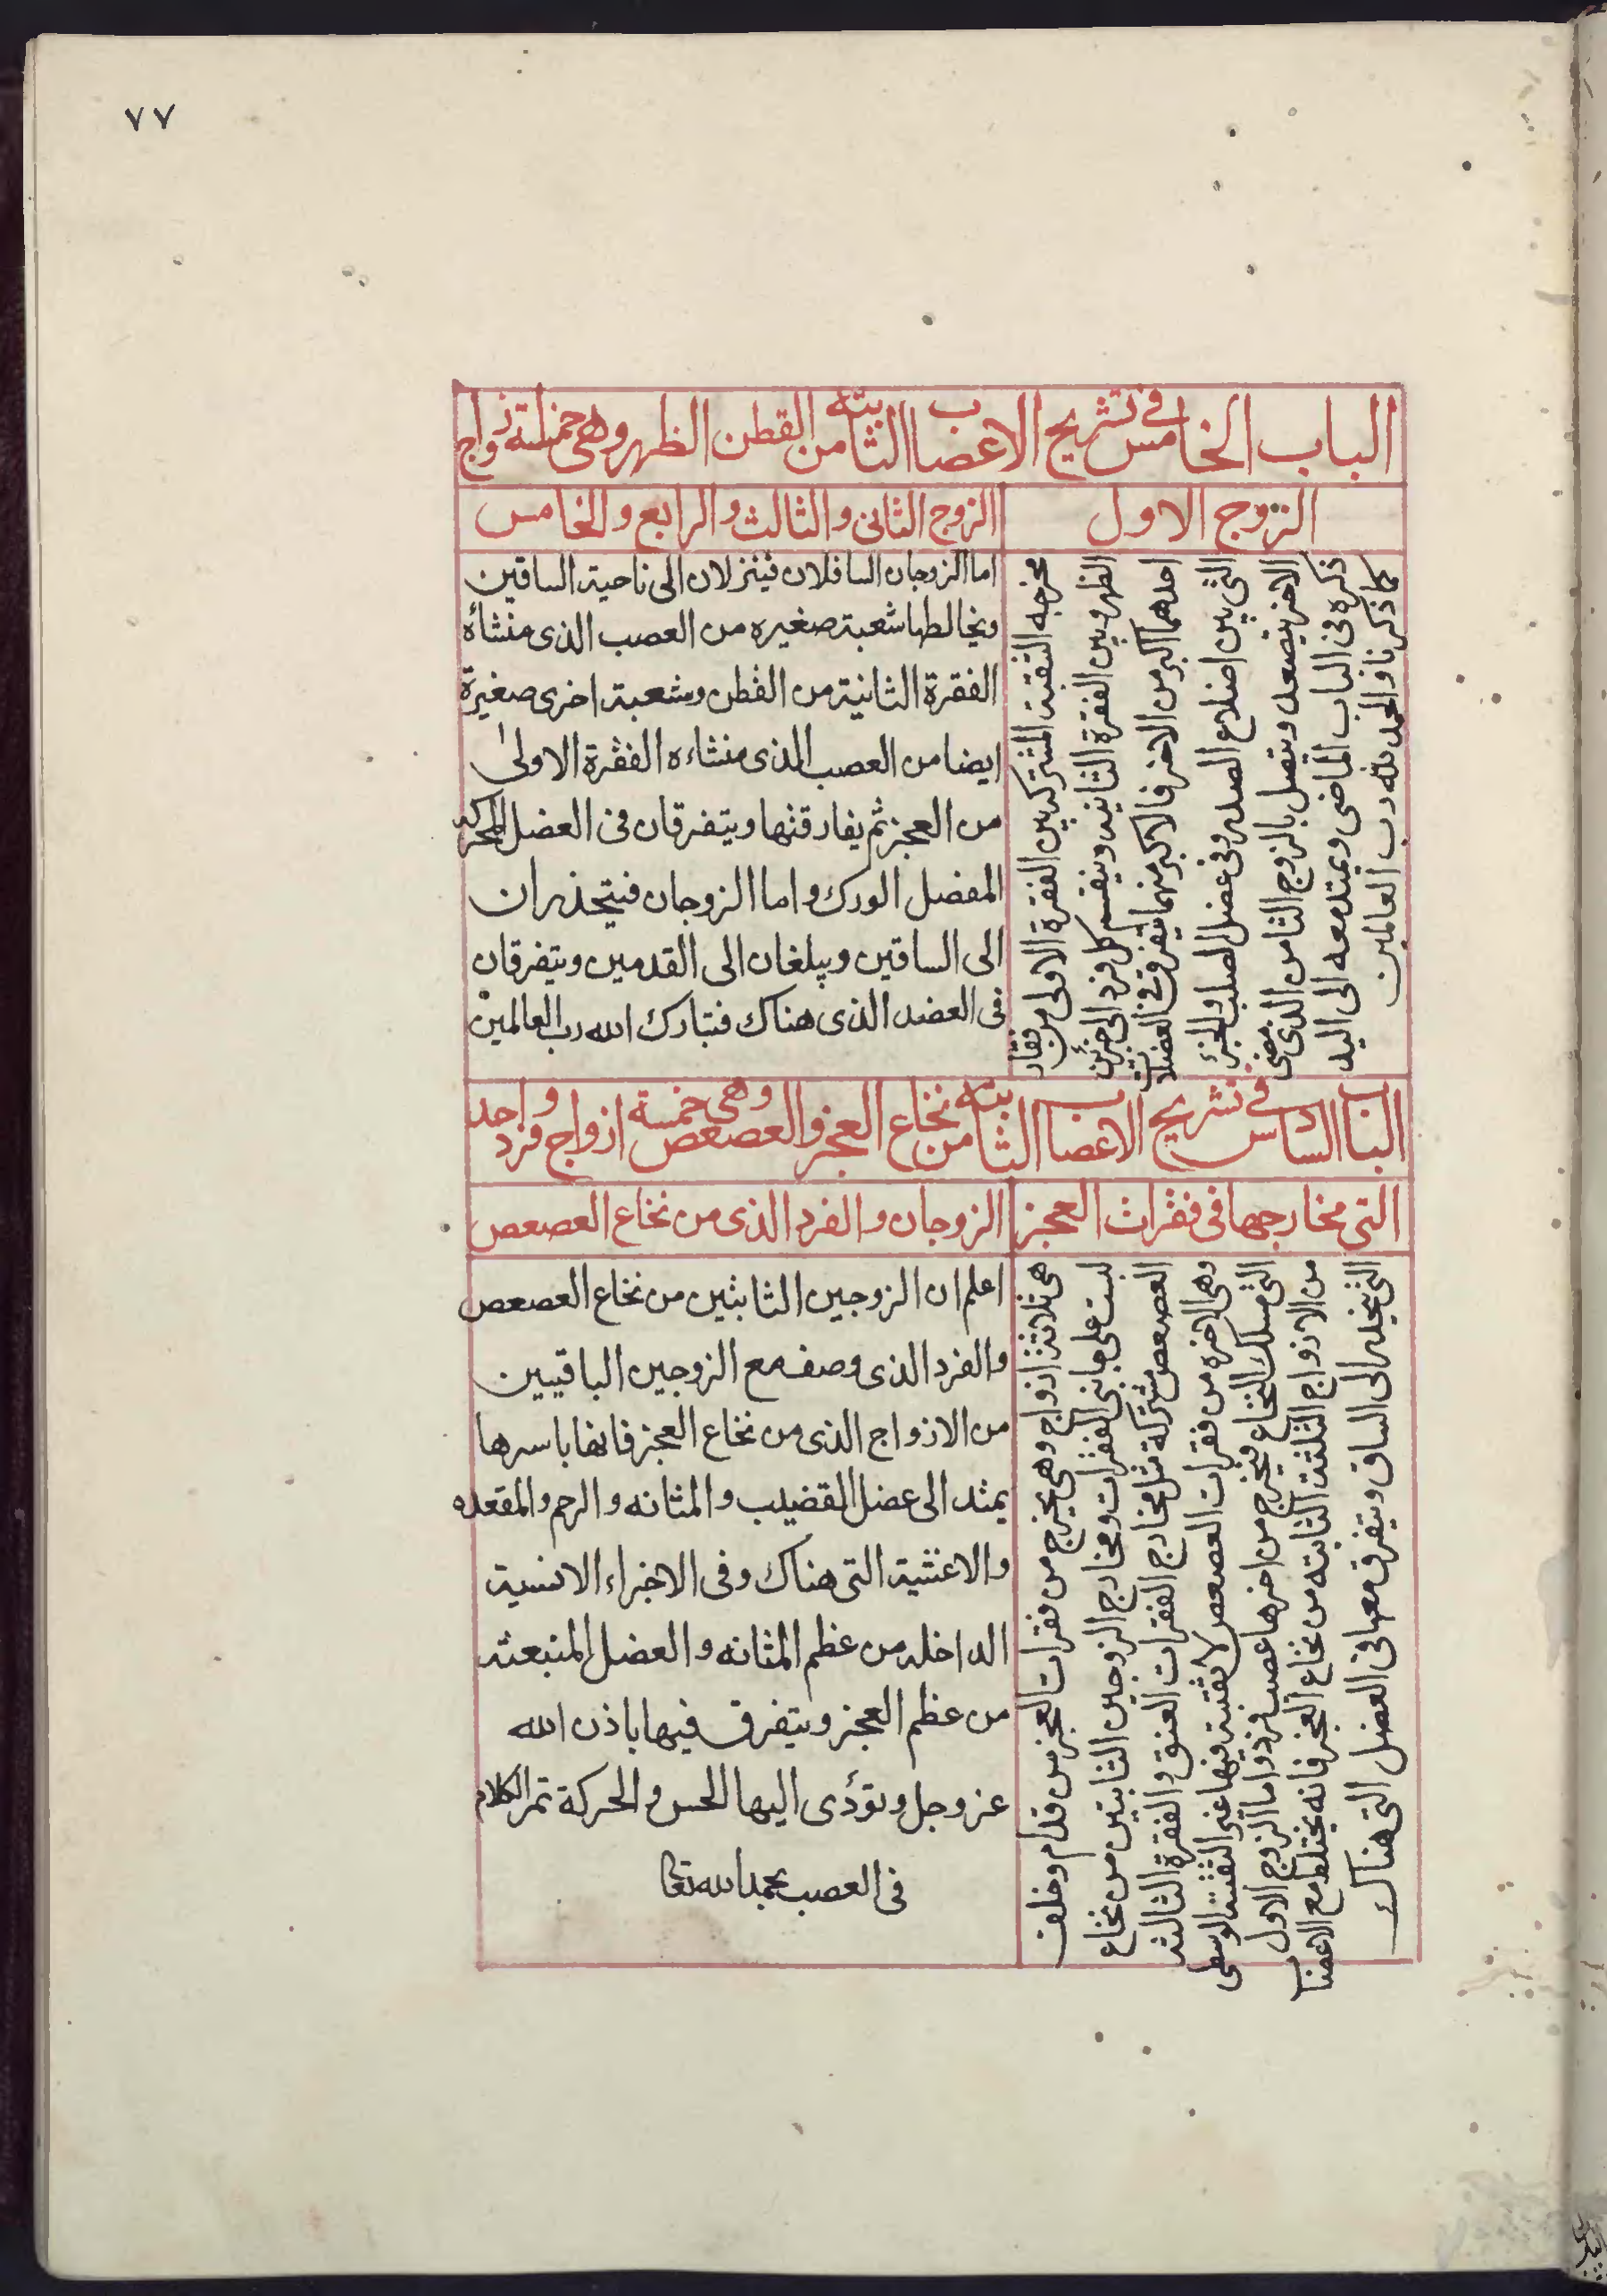 ٧٧
الباب الخامس في تشريح الاعصاب الثابته من القطن الظهر وهي خمسة ازواج
الزوج الاول
الزوج الثانى والثالث والرابع والخامس
مخرجه الثقبة المشتركه بين الفقرة الاولى من فقار
الظهر وبين الفقرة الثانيه وينقسم كل فرد الى جزئين
احدهما اكبر من الاخر فالاكبر منهما يتفرق في العضلات
التي بين اضلاع الصدر وفي عضل الصلب والجزء
الاخر يتصعد ويتصل بالزوج الثامن الذي مضى
ذكره في الباب الماضى ويمتد معه الى اليد
كما ذكرنا والحمد لله رب العالمين
اما الزوجان السافلان فينزلان الى ناحية الساقين
ويخالطها شعبة صغيره من العصب الذى منشأه
الفقرة الثانية من القطن وشعبة اخرى صغيرة
ايضا من العصب الذى منشاءه الفقرة الاولى
من العجز ثم يفارقنها ويتفرقان فى العضل المحركه
المفضل الورك واما الزوجان فيتحذران
الى الساقين ويبلغان الى القدمين ويتفرقان
فى العضد الذى هناك فتبارك الله رب العالمين
الباب السادس في تشريح الاعصاب الثابته من نخاع العجز والعصعص وهى خمسة ازواج وفرد واحد
التى مخارجها فى فقرات العجز
الزوجان والفرد الذى من نخاع العصعص
هى ثلاثة ازواج وهى يخرج من فقرات العجز من قدام وخلف
لبست على جانبى الفقرات ومخارج الزوجين الثابتين من نخاع
العصعص مشتركة مثل مخارج الفقرات العنق والفقرة الثالثه
وهى الاخره من فقرات العصعص لا ثقبة فيها غير الثقبة الوسطى
التي مسلك النخاع فيخرج من اخرها عصب فرد واما الزوج الاول
من الازواج الثلثة الثابته من نخاع العجز فانه يختلط مع الاعصاب
التى ينحدر الى الساق ويتفرق معها فى العضل التى هناك
اعلم ان الزوجين الثابثين من نخاع العصعص
والفرد الذى وصف مع الزوجين الباقيين
من الازواج الذى من نخاع العجز فانها باسرها
يمثد الى عضل القضيب والمثانه والرحم والمقعده
والاغشية التى هناك وفى الاجزاء الانسية
الداخله من عظم المثانه والعضل المنبعثه
من عظم العجز ويتفرق فيها باذن الله
عز وجل وتؤدى اليها الحس والحركة تمر الكلام
فى العصب بحمد الله تعا